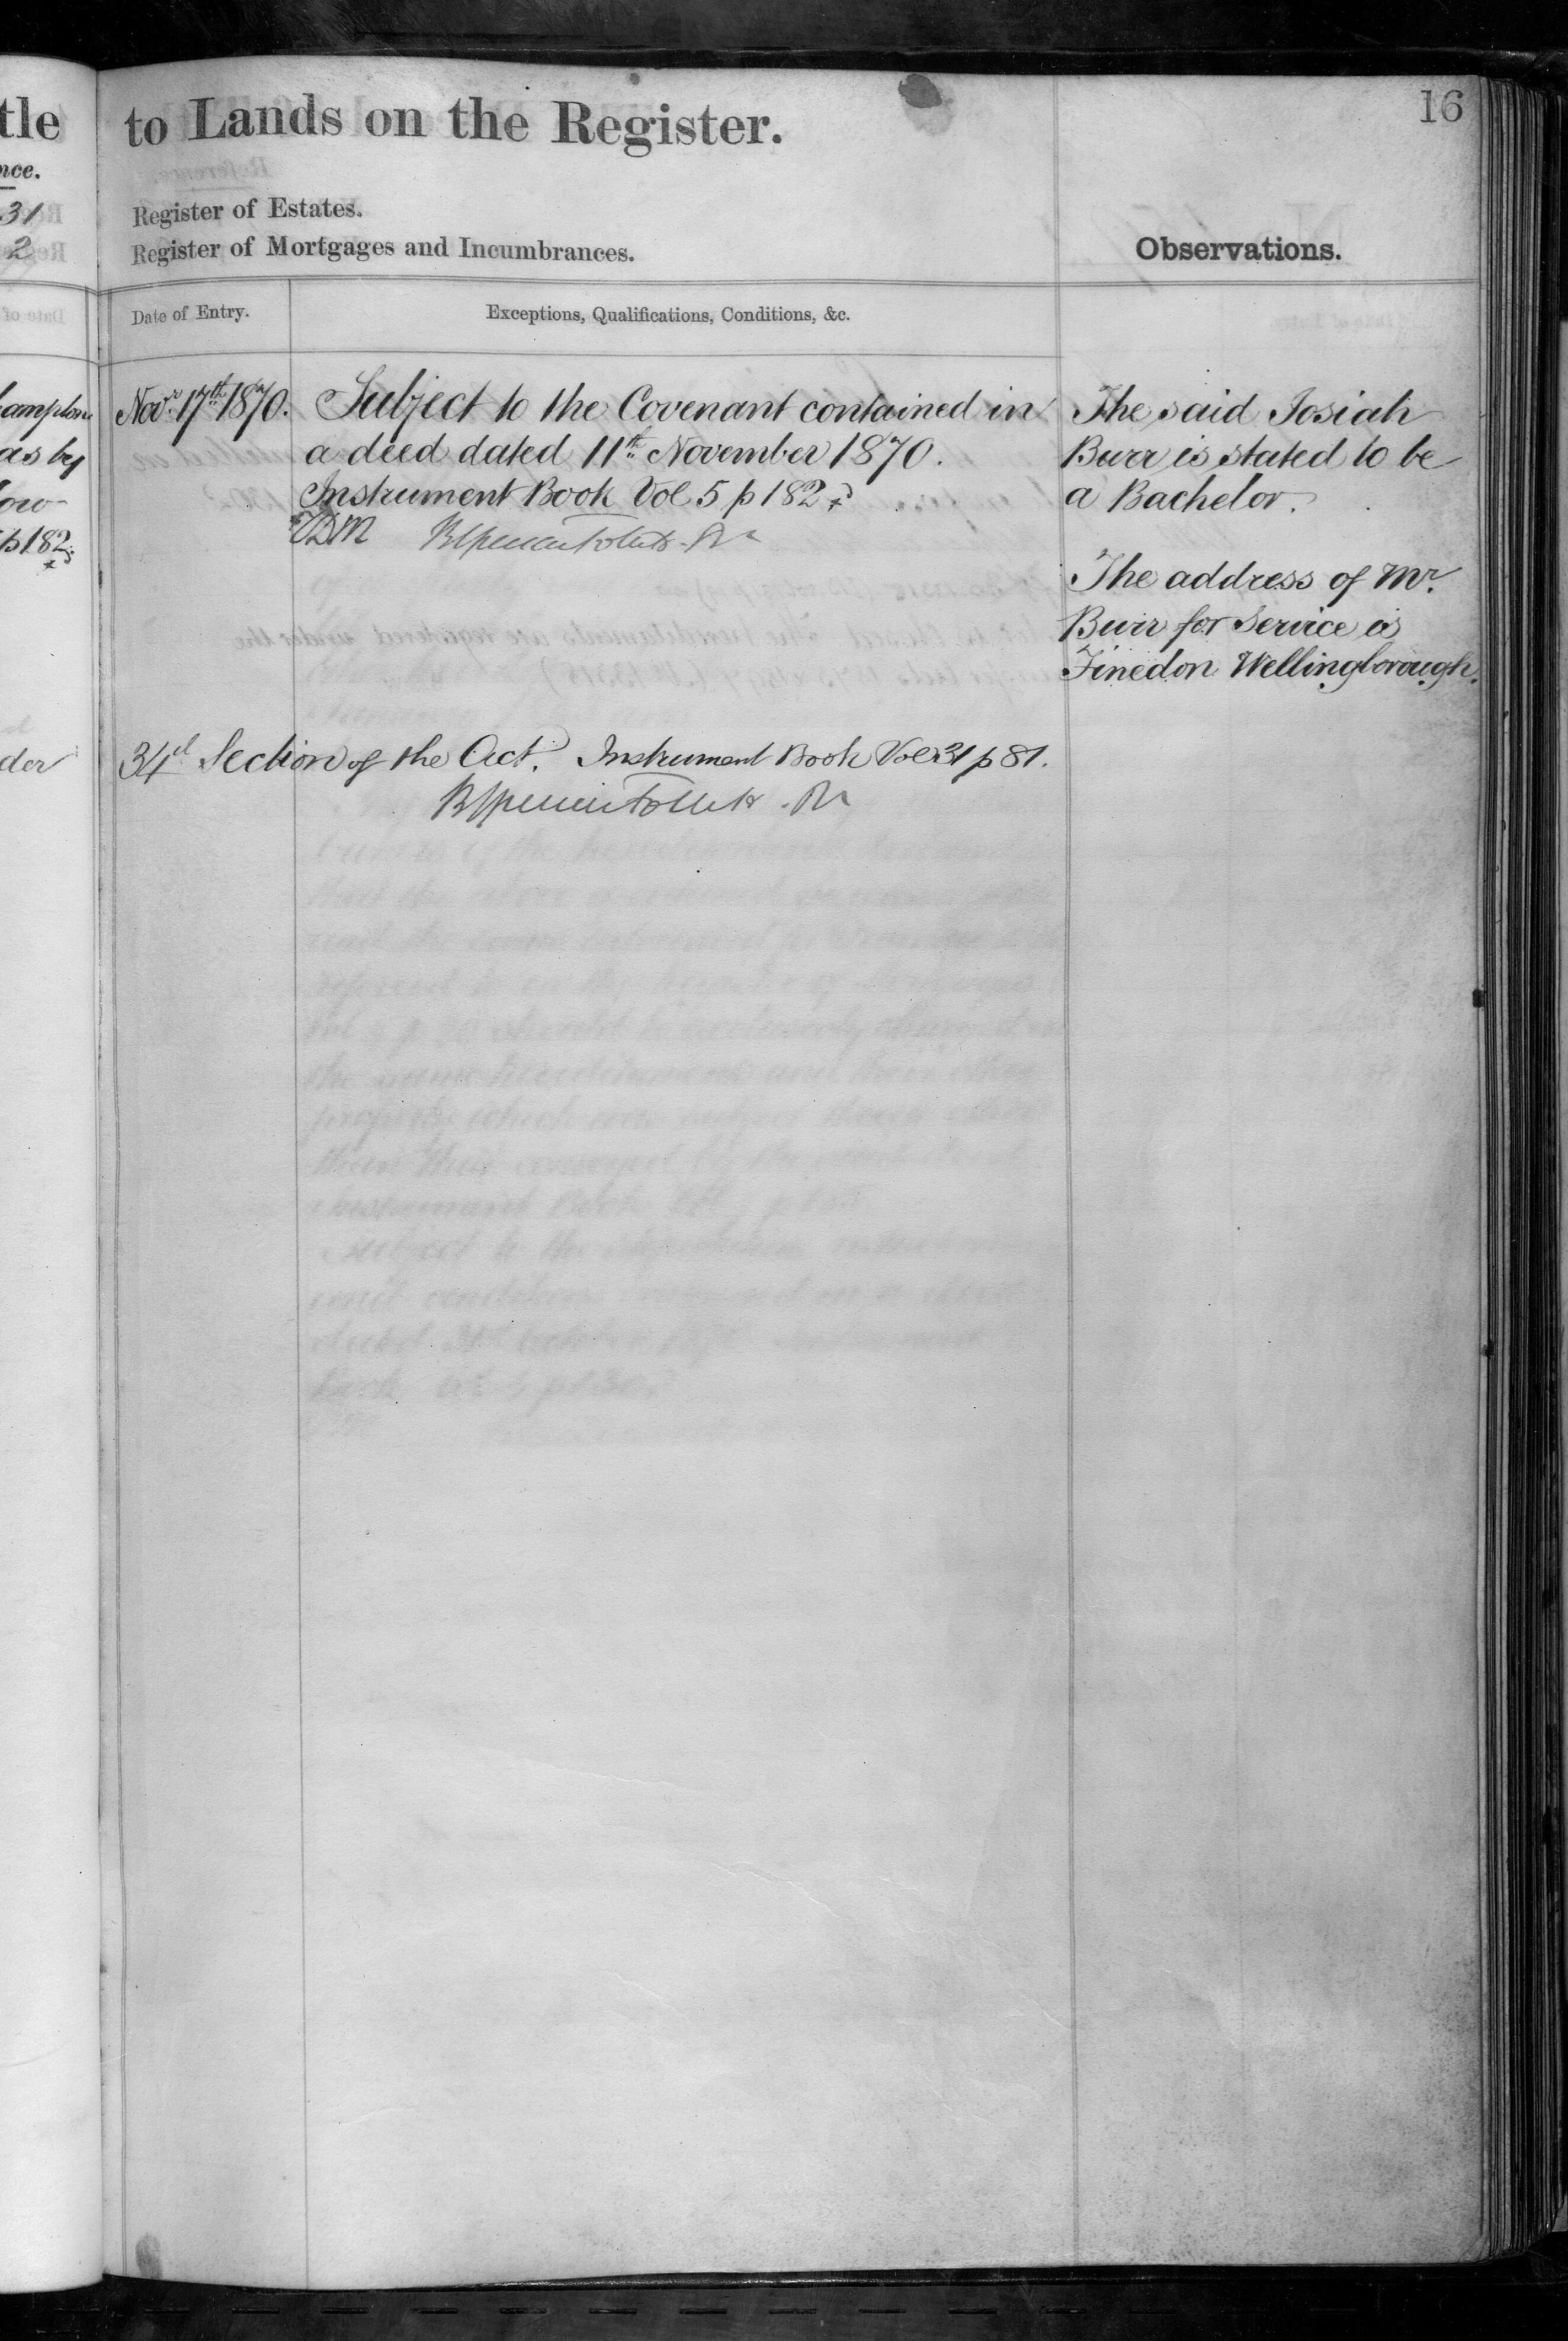 tle
nce.
31
2
hampton
as by
low
p 182
der
to Lands on the Register.
16
Register of Estates.
Register of Mortgages and Incumbrances.
Observations.
Date of Entry.
Exceptions, Qualifications, Conditions, &c.
Novr. 17th 1870.
Subject to the Covenant contained in
a deed dated 11th November 1870.
Instrument Book Vol 5 p 182
The said Josiah
Burr is stated to be
a Bachelor.
The address of Mr.
Burr for Service is
Finedon Wellingborough.
34d Section of the Act. Instrument Book Vol 31 p 81.